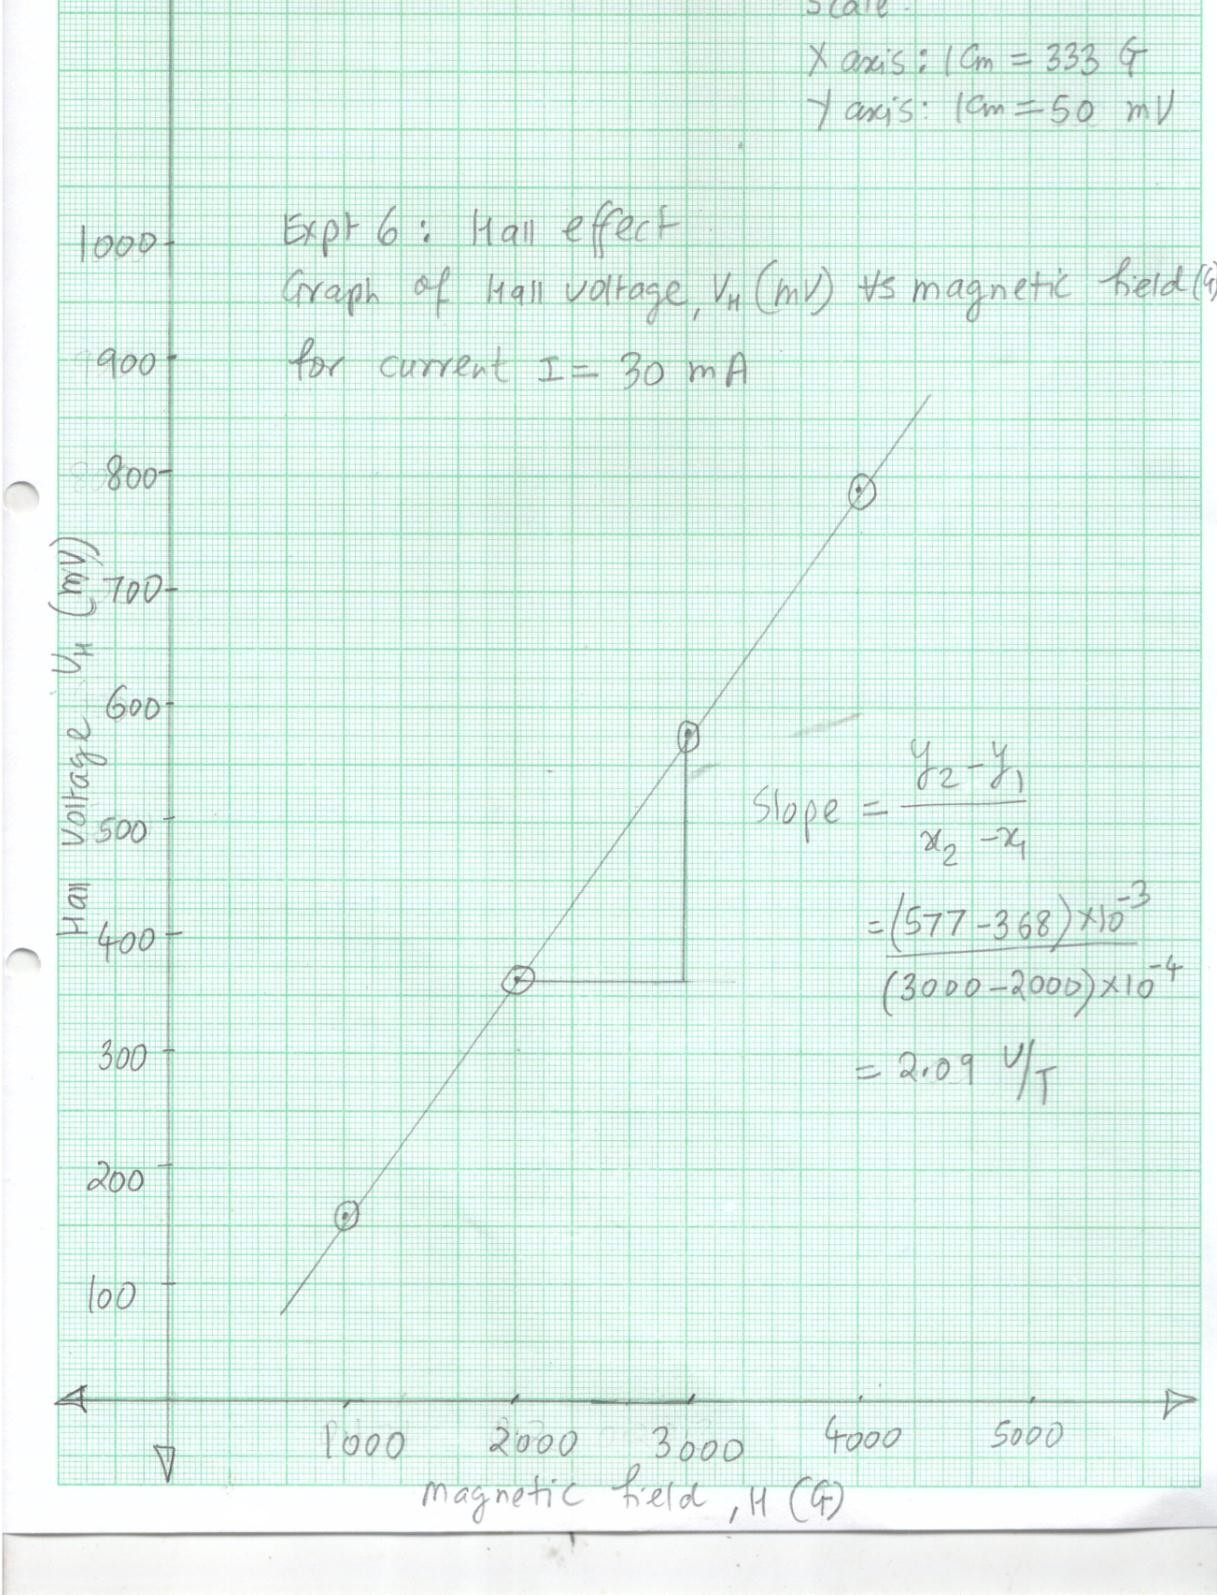 Scale:
X axis: 1 Cm = 333 G
Y axis: 1 Cm = 50 mV
Expt 6: Hall effect
Graph of Hall voltage, V_H (mV) Vs magnetic field (G)
for current I = 30 mA
1000
900
800
700
600
500
400
300
200
100
Hall Voltage V_H (mV)
Slope = y₂ - y₁
x₂ - x₁
= (577 - 368) × 10⁻³
(3000 - 2000) × 10⁻⁴
= 2.09 V/T
1000 2000 3000 4000 5000
magnetic field, H (G)